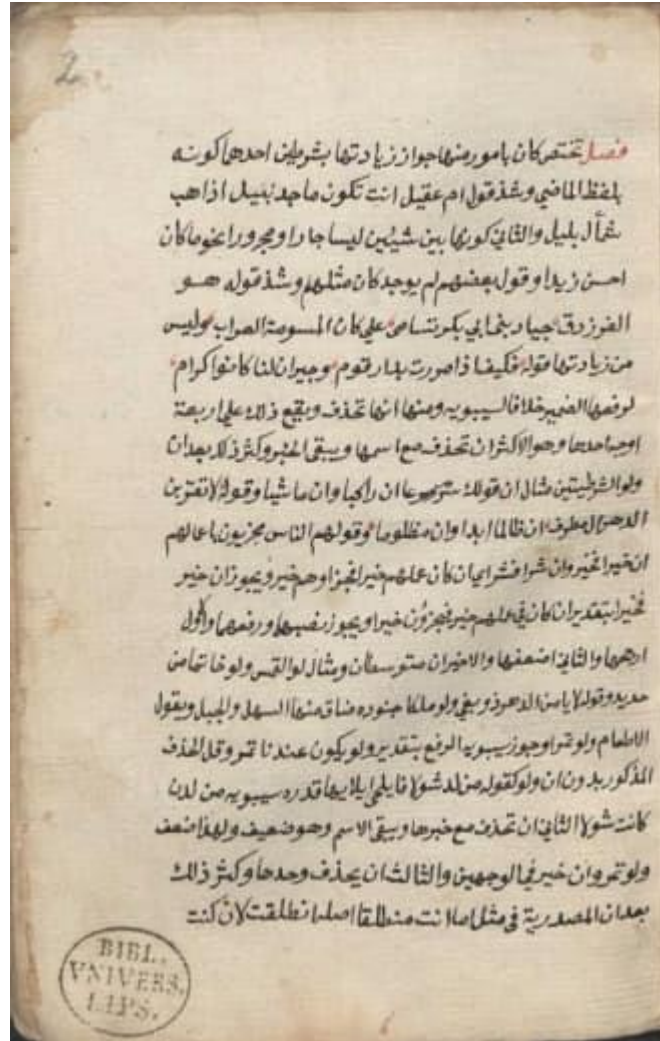 2
فصل تختص كان بامور منها جواز زيادتها بشرطين احدهما كونه
بلفظ الماضي وشذ قول ام عقيل انت تكون ماجد نبيل اذا تهب
شمأل بليل والثاني كونها بين شيئين ليسا جارا ومجرورا نحو ما كان
احسن زيدا وقول بعضهم لم يوجد كان مثلهم وشذ قوله هو
الفرزدق جياد بني ابي بكر تسامى على كان المسومة العراب وليس
من زيادتها قوله فكيف اذا مررت بدار قوم وجيران لنا كانوا كرام
لرفعها الضمير خلافا لسيبويه ومنها انها تحذف ويقع ذلك على اربعة
اوجه احدها وهو الاكثر ان تحذف مع اسمها ويبقى الخبر وكثر ذلك بعد ان
ولو الشرطيتين مثال ان قولك سر مسرعا ان راكبا وان ماشيا وقوله لا تقربن
الدهر ال مطرف ان ظالما ابدا وان مظلوما وقولهم الناس مجزيون باعمالهم
ان خيرا فخير وان شرا فشر اي ان كان عملهم خيرا فجزاوهم خير ويجوز ان خير
فخيرا بتقدير ان كان في عملهم خير فيجزون خيرا ويجوز نصبهما ورفعهما والاول
ارجحها والثاني اضعفها والاخيران متوسطان ومثال لو التمس ولو خاتما من
حديد وقوله لا يامن الدهر ذو بغي ولو ملكا جنوده ضاق منها السهل والجبل وبقول
الاطعام ولو تمرا وجوز سيبويه الرفع بتقدير ولو يكون عندنا تمر وقل الحذف
المذكور بدون ان ولو كقوله من لد شولا فالى اتلايها قدره سيبويه من لدن
كانت شولا الثاني ان تحذف مع خبرها ويبقى الاسم وهو ضعيف ولهذا ضعف
ولو تمر وان خير في الوجهين والثالث ان يحذف وحدها وكثر ذلك
بعد ان المصدرية في مثل اما انت منطلقا اصله انطلقت لان كنت
BIBL.
VNIVERS.
LIPS.